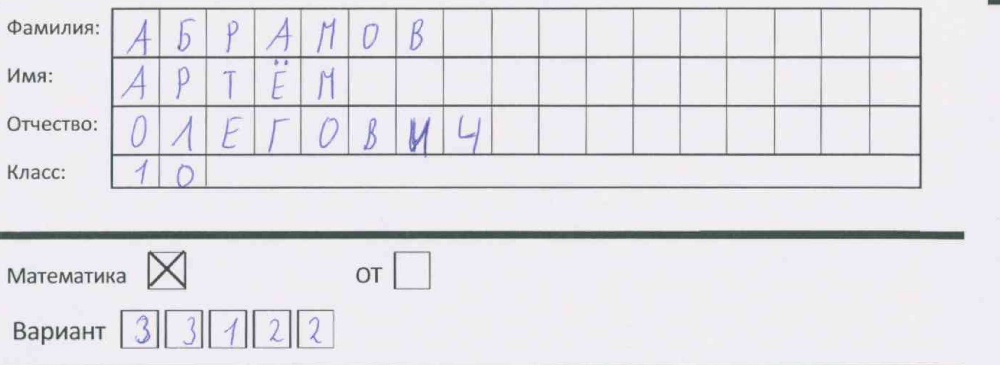 Фамилия: АБРАМОВ
Имя: АРТЁМ
Отчество: ОЛЕГОВИЧ
Класс: 10
Математика ☒ от ☐
Вариант 33122